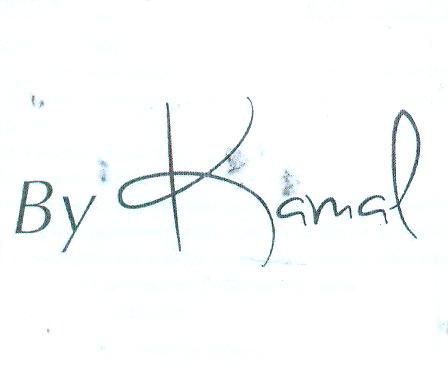 By Kamal